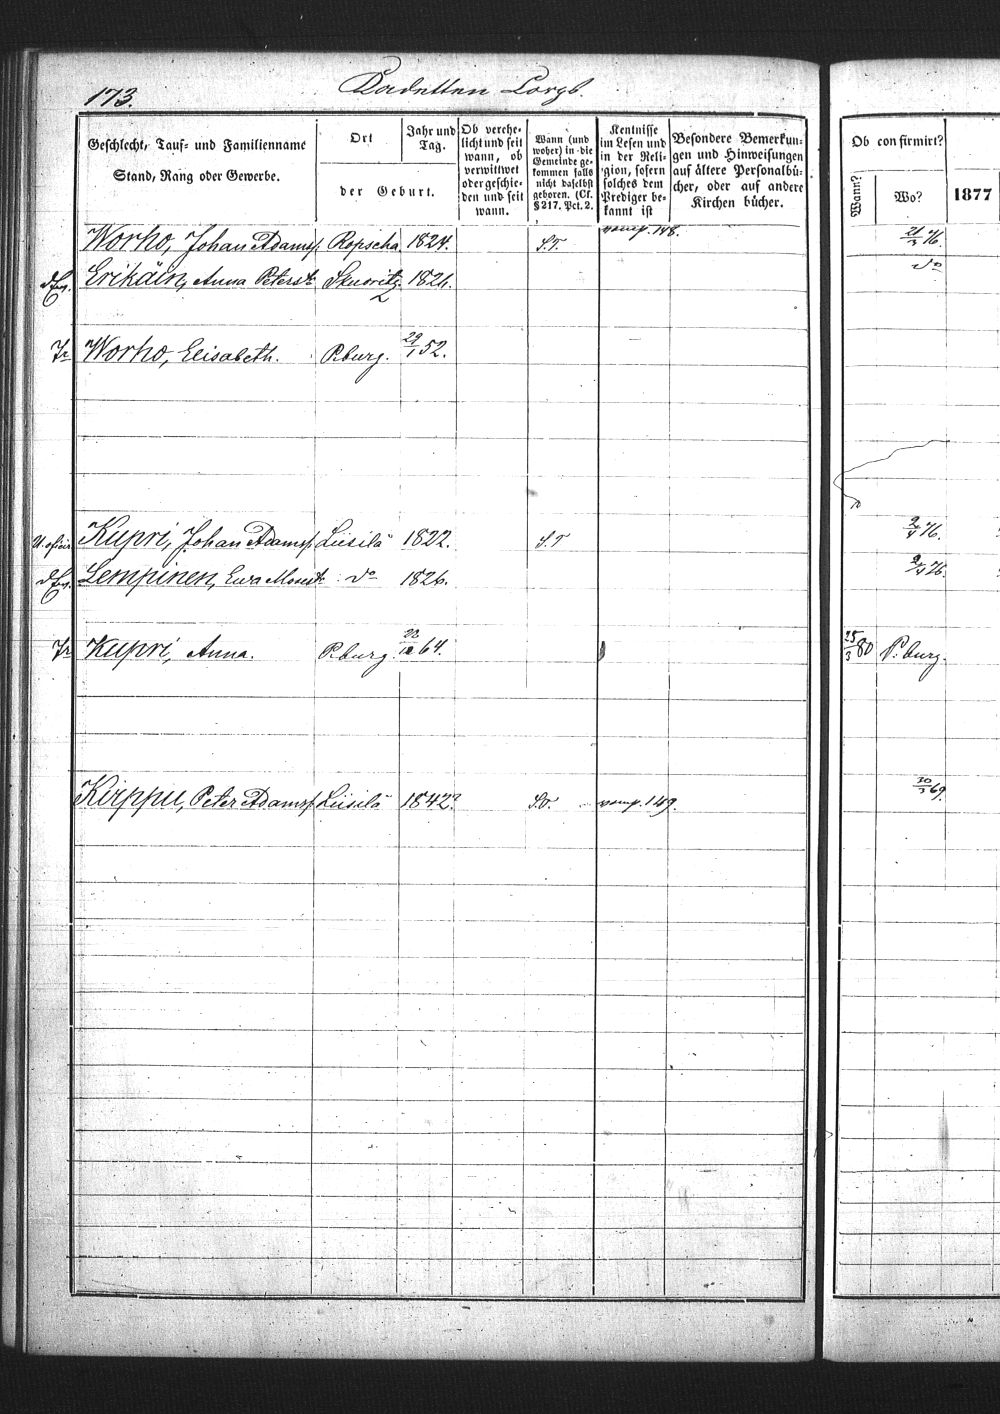 173. Kadetten Corps.
Geschlecht, Tauf- und Familienname
Stand, Rang oder Gewerbe.
Ort
der Geburt.
Jahr und
Tag.
Ob verehe-
licht und seit
wann, ob
verwittwet
oder geschie-
den und seit
wann.
Wann (und
woher) in die
Gemeinde ge-
kommen falls
nicht daselbst
geboren. (Cf.
§ 217. Pct. 2.
Kentnisse
im Lesen und
in der Reli-
gion, sofern
solches dem
Prediger be-
kannt ist
Besondere Bemerkun-
gen und Hinweisungen
auf ältere Personalbü-
cher, oder auf andere
Kirchen bücher.
Ob confirmirt?
Wann?
Wo?
1877
Worho, Johan Adams Ropscha 1824. S.T. 148. 21/3 76.
Erikäin, Anna Peterst Skworitz 1826. do
Tr Worho, Elisabeth. P.burg. 29/1 52.
Kupri, Johan Adams Liisilä 1822. S.T 2/4 76.
Lempinen, Ewa Mosest do 1826. 2/4 76.
Tr Kupri, Anna. P.burg. 22/12 64. 25/3 80 P.burg.
Kirppu, Peter Adams Liisilä 1842? 149. 30/3 69.